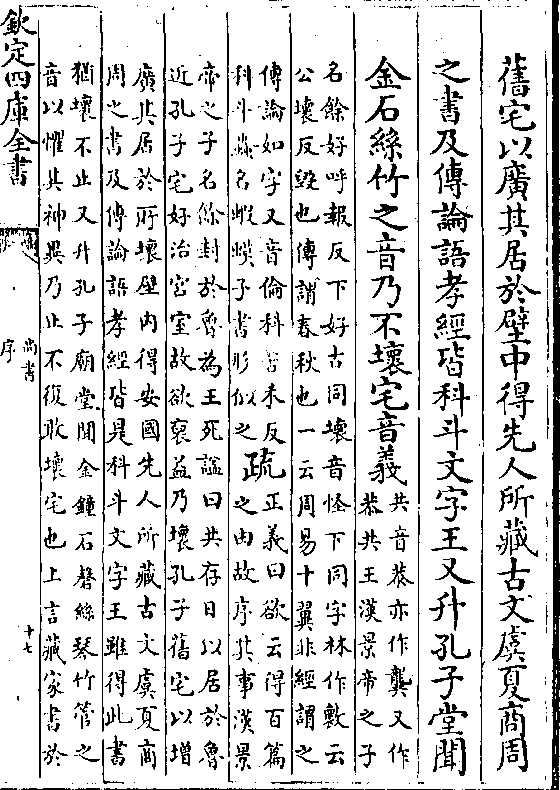 舊宅以廣其居於壁中得先人所藏古文虞夏商周
之書及傳論語孝經皆科斗文字王又升孔子堂聞
金石絲竹之音乃不壞宅音義
共音恭亦作龔又作
恭共王漢景帝之子
名餘好呼報反下好古同壞音怪下同字林作㱮云
公壞反毀也傳謂春秋也一云周易十翼非經謂之
傳論如字又音倫科苦禾反
科斗蟲名蝦蟆子書形似之
疏
正義曰欲云得百篇
之由故序其事漢景
帝之子名餘封於魯為王死謚曰共存日以居於魯
近孔子宅好治宫室故欲裒益乃壞孔子舊宅以增
廣其居於所壞壁内得安國先人所藏古文虞夏商
周之書及傳論語孝經皆是科斗文字王雖得此書
猶壞不止又升孔子廟堂聞金鐘石磬絲琴竹管之
音以懼其神異乃止不復敢壞宅也上言藏家書於
欽定四庫全書
尚書
序
十七